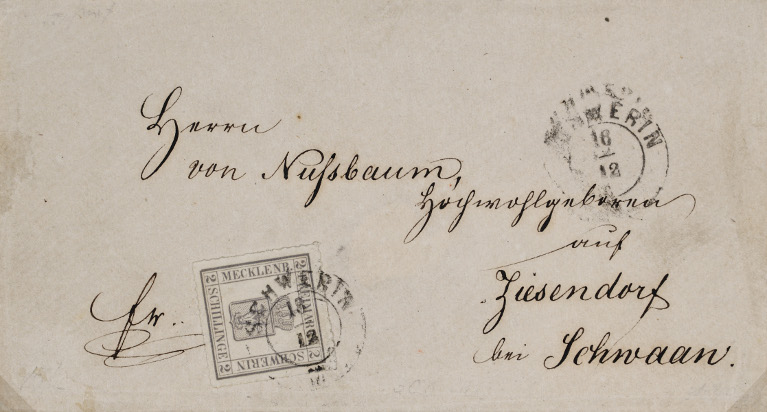 Herrn
von Nußbaum,
Hochwohlgeboren
auf
Ziesendorf
bei Schwaan.
Fr.
SCHWERIN
16
12
MECKLENB.
2 SCHILLINGE 2
SCHWERIN
SCHWERIN
12